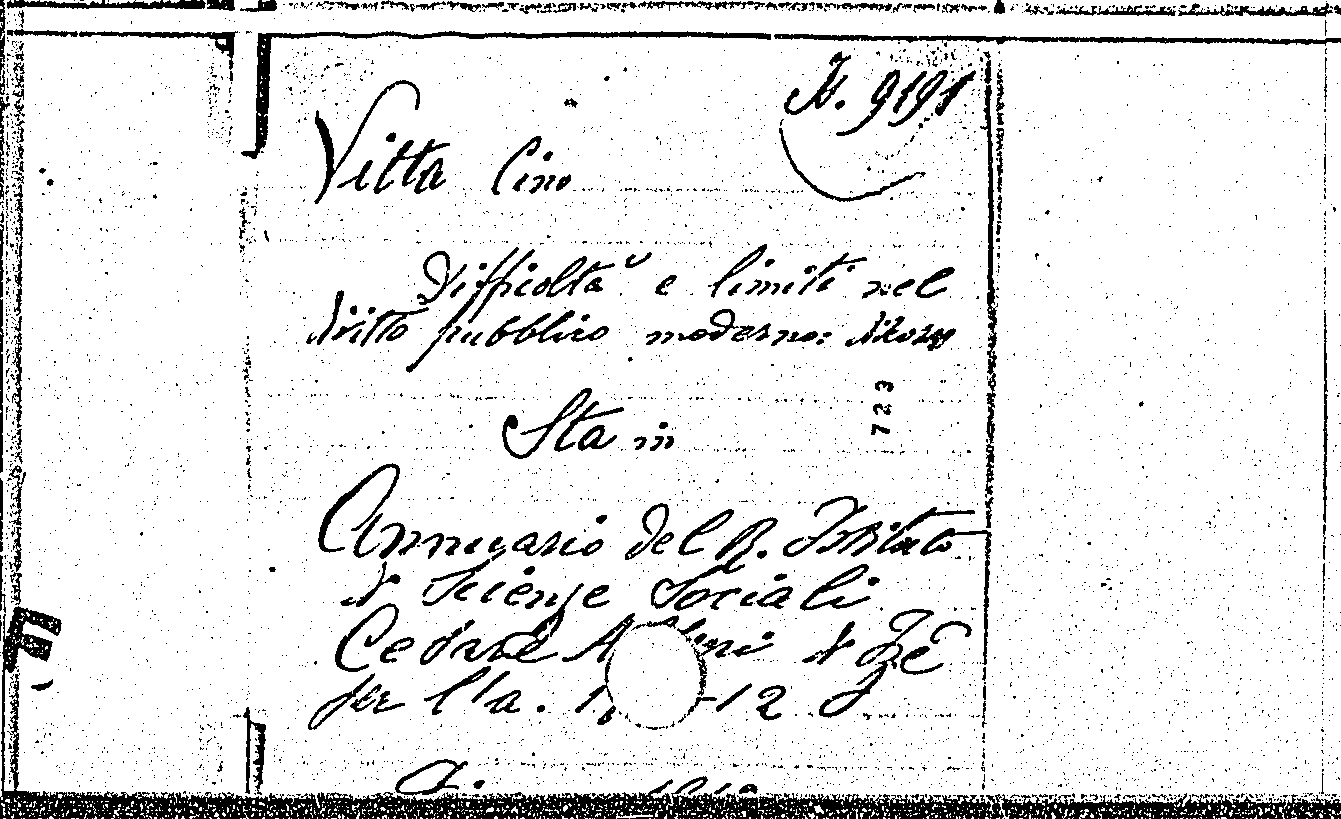 N. 9191
Vitta Cino
Difficoltà e limiti nel
diritto pubblico moderno:
723
Sta in
Annuario del R. Istituto
di Scienze Sociali
Cesare di
per l'a. -12